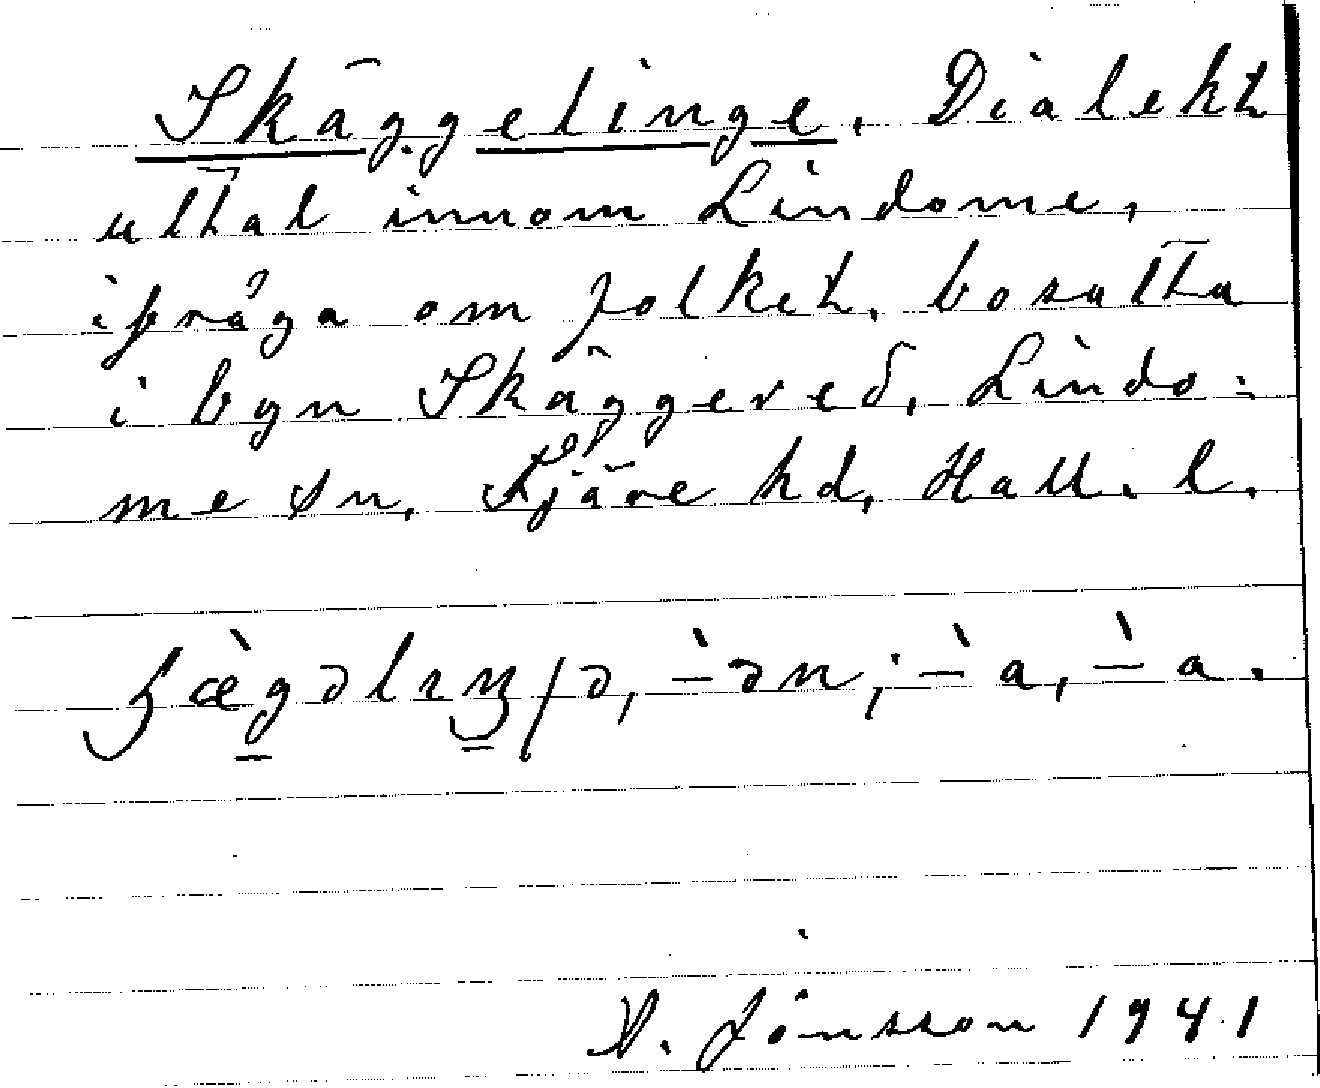 Skäggelinge. Dialekt
uttal innom Lindome,
ifråga om folket, bosatta
i byn Skäggered, Lindo-
me sn, Fjäre hd, Hall. l.
A. Jönsson 1941